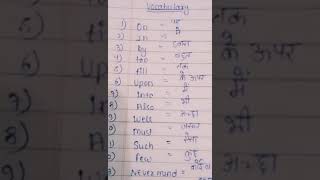 Vocabulary
1) On = पर
2) In = में
3) By = द्वारा
4) too = बहुत
5) till = तक
6) Upon = के ऊपर
7) Into = में
8) Also = भी
9) Well = अच्छा
must = जरूर
Such = ऐसा
Few = कुछ
Never mind =
के ऊपर
में
भी
अच्छा